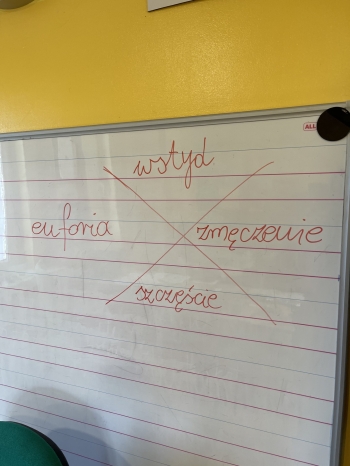 wstyd
euforia zmęczenie
szczęście